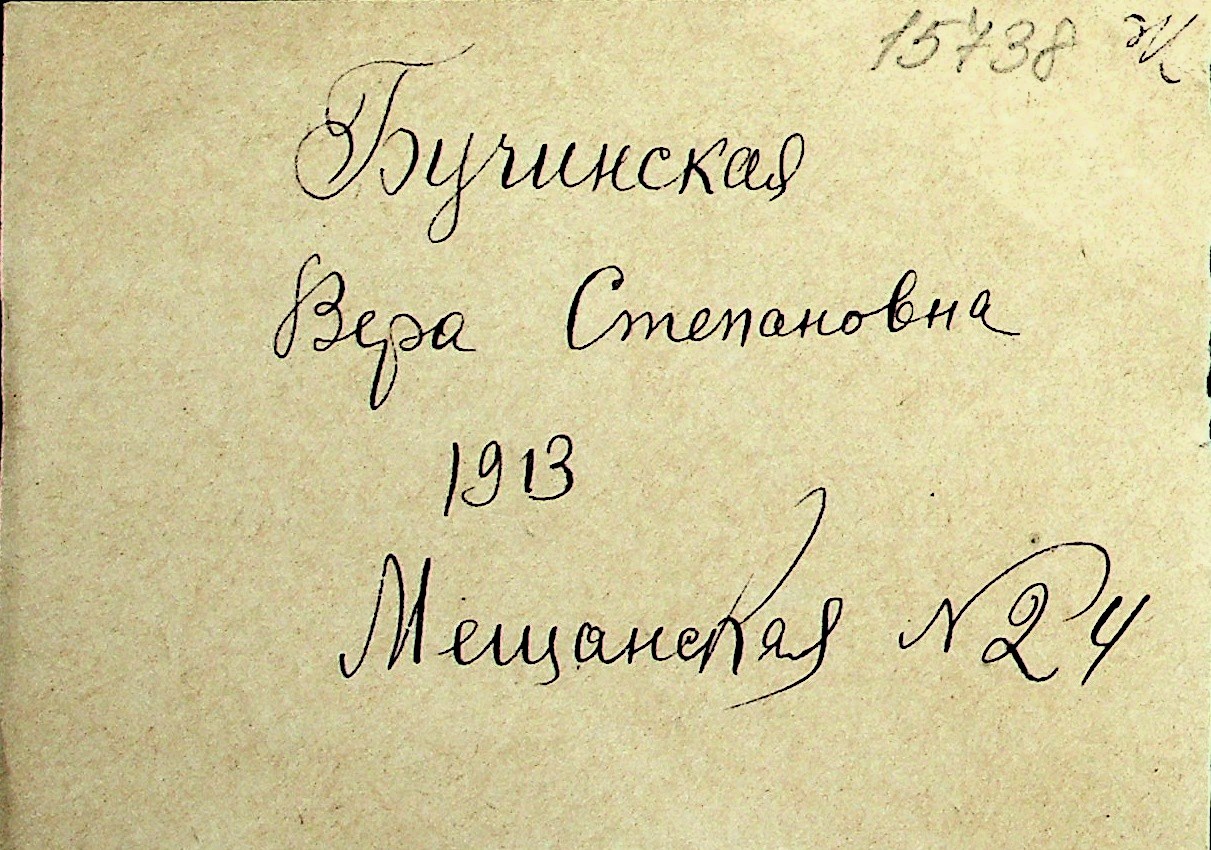 15738 ж
Бучинская
Вера Степановна
1913
Мещанская № 24